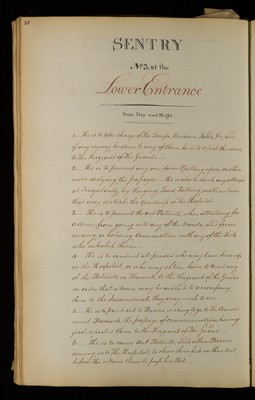 SENTRY
No 3, at the
Lower Entrance
Duty Day and Night
1. He is to take charge of the Lamps, Windows, Tables &c, and
if any injury be done to any of them he is to report the same
to the Sergeant of the Guard.
2. He is to prevent any one from spitting upon, or other
wise dirtying the passage. He is also to check any attempt
at Irregularity by Singing, Loud Talking, or other noise
that may disturb the quietness of the Hospital.
3. He is to prevent the out Patients, when attending for
advice, from going into any of the Wards, and from
or holding communication with any of the Sick
who inhabit them.
4. He is to conduct all persons who may have business
in the Hospital, or who may obtain leave to visit any
of the Patients, or Servants, to the Sergeant of the Guard
in order that a man may be ordered to accompany
them to the Individuals they may wish to see.
5. He is to point out to Persons wishing to go to the
Barrack, the passage of communication, having
first them to the Sergeant of the Guard.
6. He is to cause out Patients, and other Persons
coming into the Hospital, to clean their feet on the Mat,
before he allows them to pass his Post.